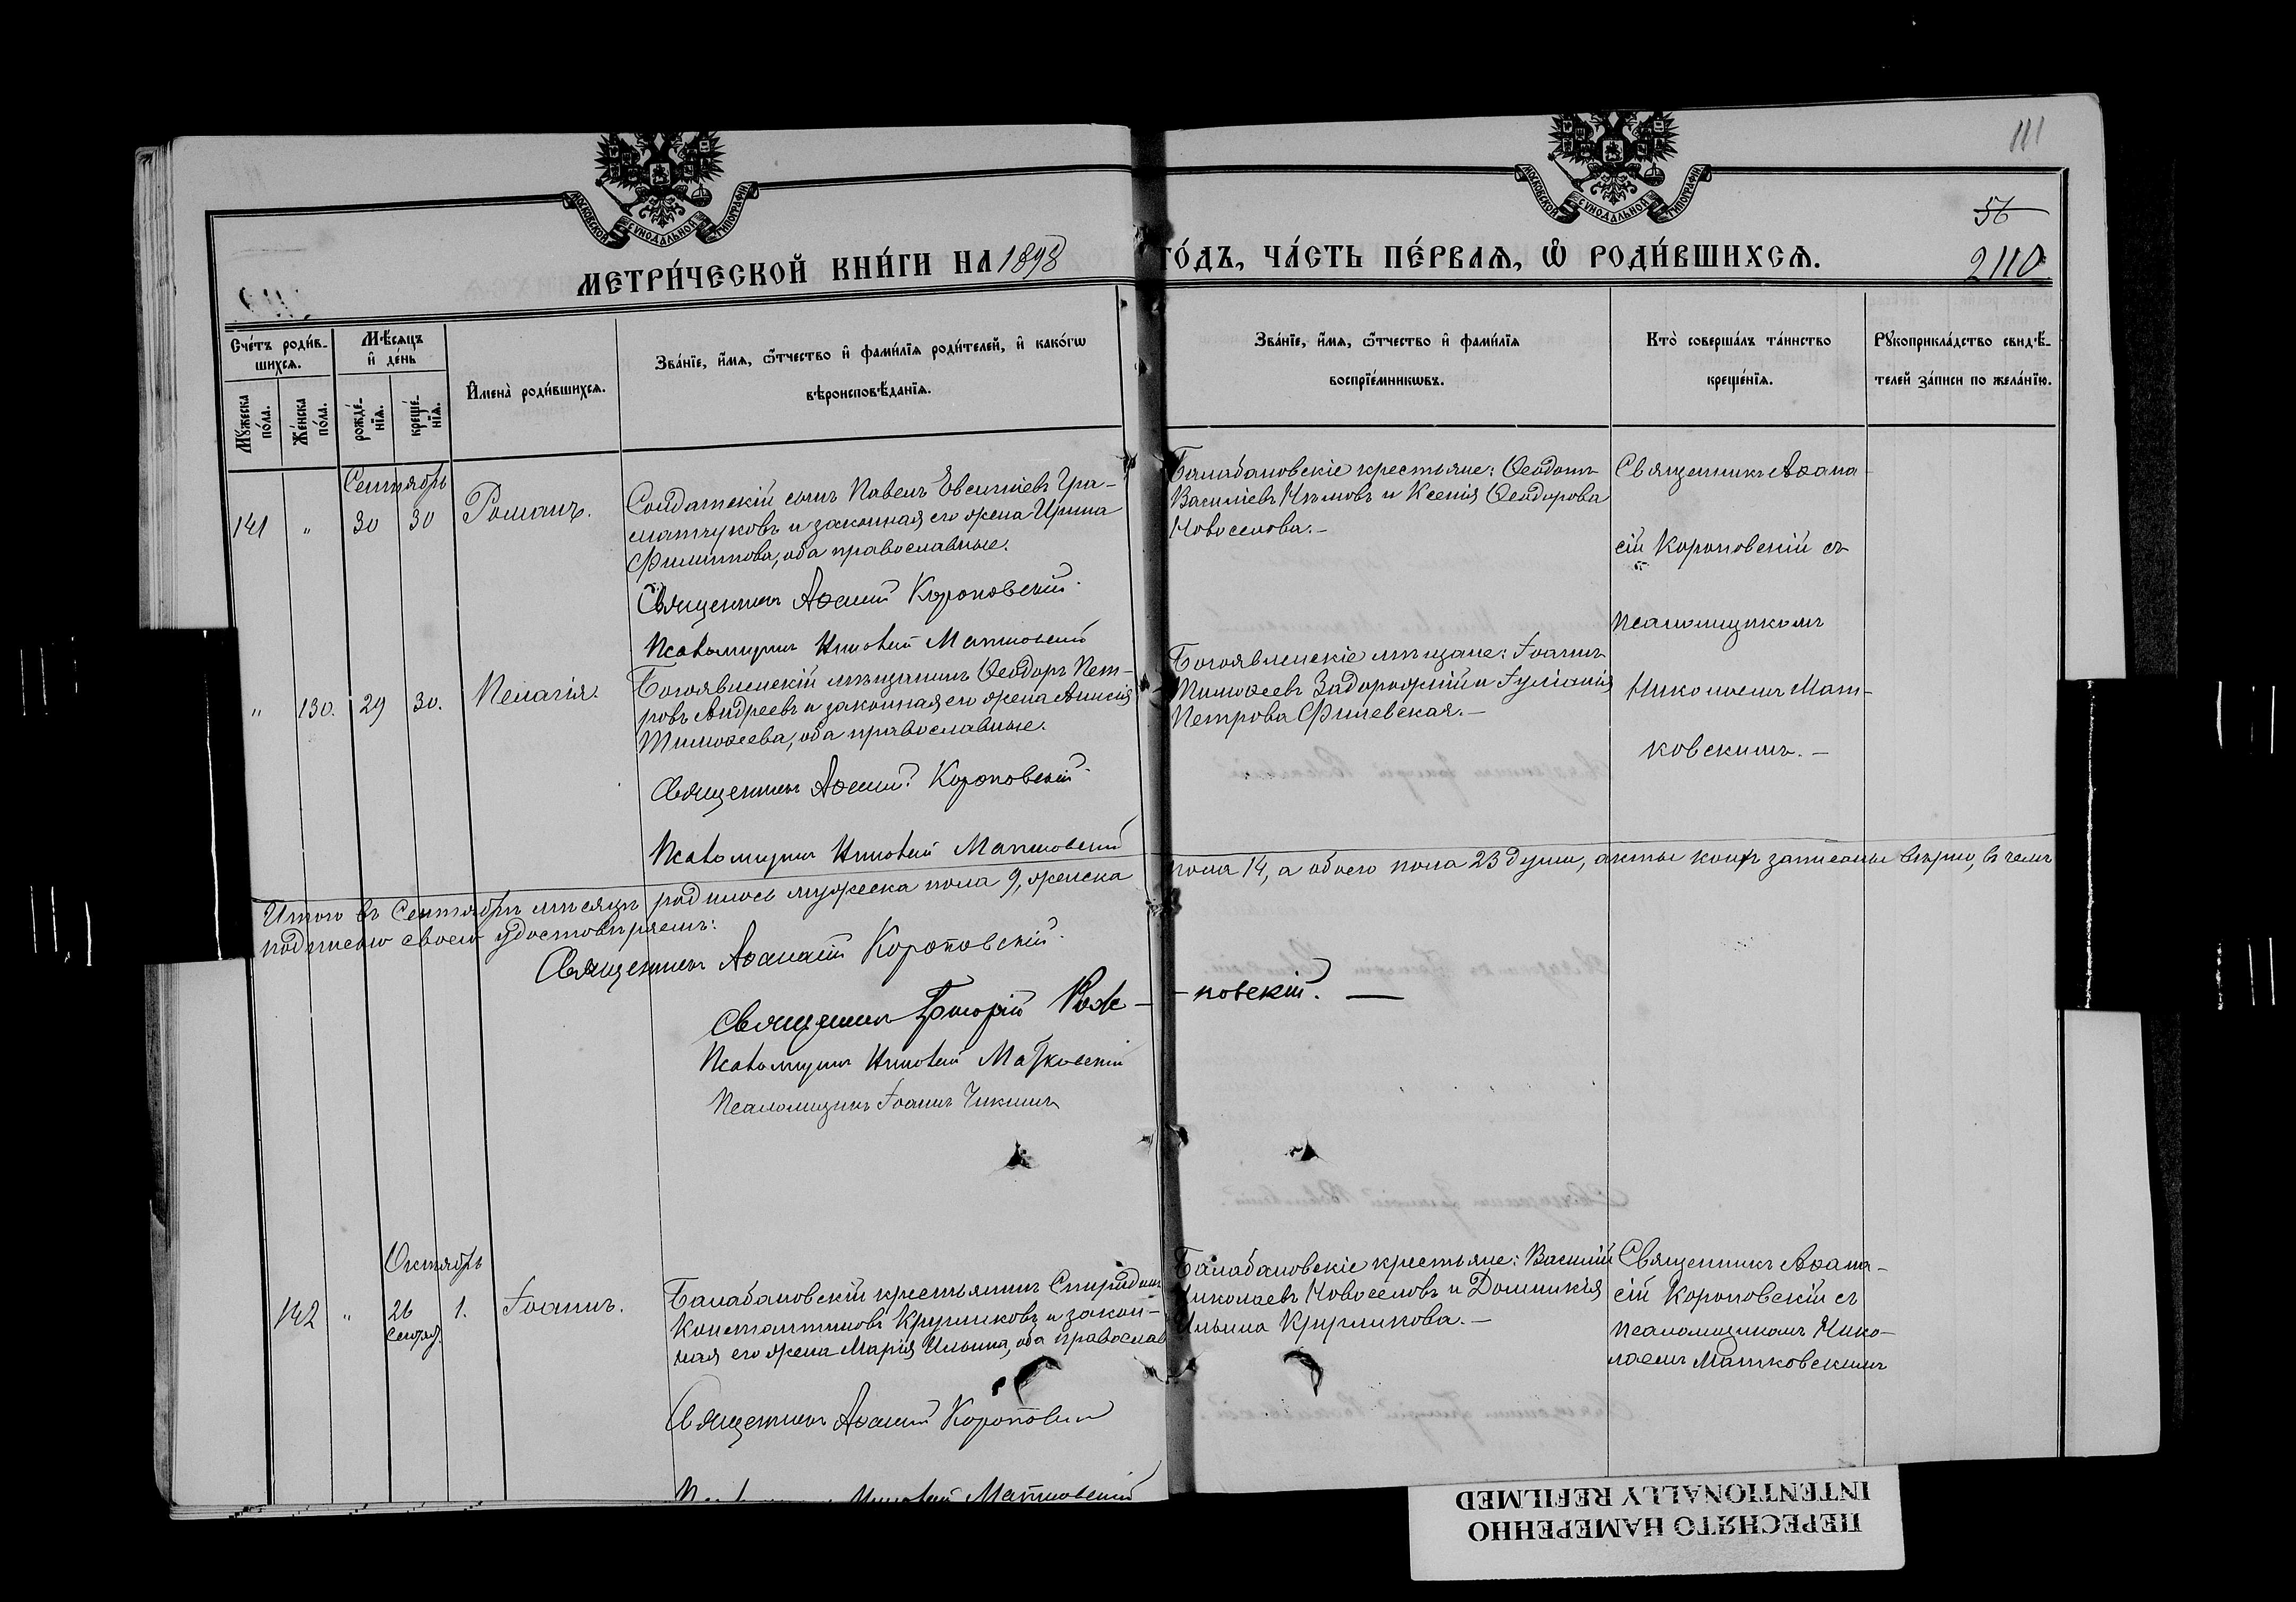 111
56
2110
МОСКОВСКОЙ СѴНОДАЛЬНОЙ ТИПОГРАФІИ
МОСКОВСКОЙ СѴНОДАЛЬНОЙ ТИПОГРАФІИ
МЕТРИ́ЧЕСКОЙ КНИ́ГИ НА 1898 ГО́ДЪ, ЧА́СТЬ ПЕ́РВАѦ, Ѽ РОДИ́ВШИХСѦ.
Сче́тъ роди́в-
шихсѧ.
Мꙋ́жеска по́ла.
Же́нска по́ла.
Мѣ́сѧцъ и҆ день
рожде́-нїѧ.
креще́-нїѧ.
И҆мена̀ роди́вшихсѧ.
Зва́нїе, и҆́мѧ, ѻ҆́тчество и҆ фами́лїѧ роди́телей, и҆ како́гѡ
вѣроисповѣ́данїѧ.
Зва́нїе, и҆́мѧ, ѻ҆́тчество и҆ фами́лїѧ
воспрїе́мникѡвъ.
Кто̀ соверша́лъ та́инство
креще́нїѧ.
Рꙋкоприкла́дство свидѣ́-
телей за́писи по жела́нїю.
Сентябрь
141 " 30 30 Романъ.
Солдатскій сынъ Павелъ Евсигніевъ Гра-
матчуковъ и законная его жена Ирина
Филиппова, оба православные.
Священникъ Аѳанасій Короповскій.
Псаломщикъ Николай Матковскій
Балабановскіе крестьяне: Ѳеодотъ
Василіевъ Нѣмовъ и Ксенія Ѳеодорова
Новоселова.—
Священникъ Аѳана-
сій Короповскій съ
псаломщикомъ
Николаемъ Мат-
ковскимъ.—
" 130. 29 30. Пелагія.
Богоявленскій мѣщанинъ Ѳеодоръ Пет-
ровъ Андреевъ и законная его жена Анисія
Тимоѳеева, оба православные.
Священникъ Аѳанасій Короповскій.
Псаломщикъ Николай Матковскій
Богоявленскіе мѣщане: Іоаннъ
Тимоѳеевъ Задорожній и Іуліанія
Петрова Филевская.—
Итого въ Сентябрѣ мѣсяцѣ родилось мужеска пола 9, женска пола 14, а обоего пола 23 души, акты коихъ записаны вѣрно, въ чемъ
подписью своею удостовѣряемъ:
Священникъ Аѳанасій Короповскій.
Священникъ Григорій — новскій.—
Псаломщикъ Николай Матковскій
Псаломщикъ Іоаннъ Чикинъ
Октябрь
142 " 26 1. Іоаннъ.
сентяб.
Балабановскій крестьянинъ Спиридонъ
Константиновъ Кругликовъ и закон-
ная его жена Марія Ильина, оба православ
Священникъ Аѳанасій Короповскій
Псаломщикъ Николай Матковскій
Балабановскіе крестьяне: Василій
Николаевъ Новоселовъ и Домникія
Ильина Кругликова.—
Священникъ Аѳана-
сій Короповскій съ
псаломщикомъ Нико-
лаемъ Матковскимъ
ПЕРЕСНЯТО НАМЕРЕННО
INTENTIONALLY REFILMED